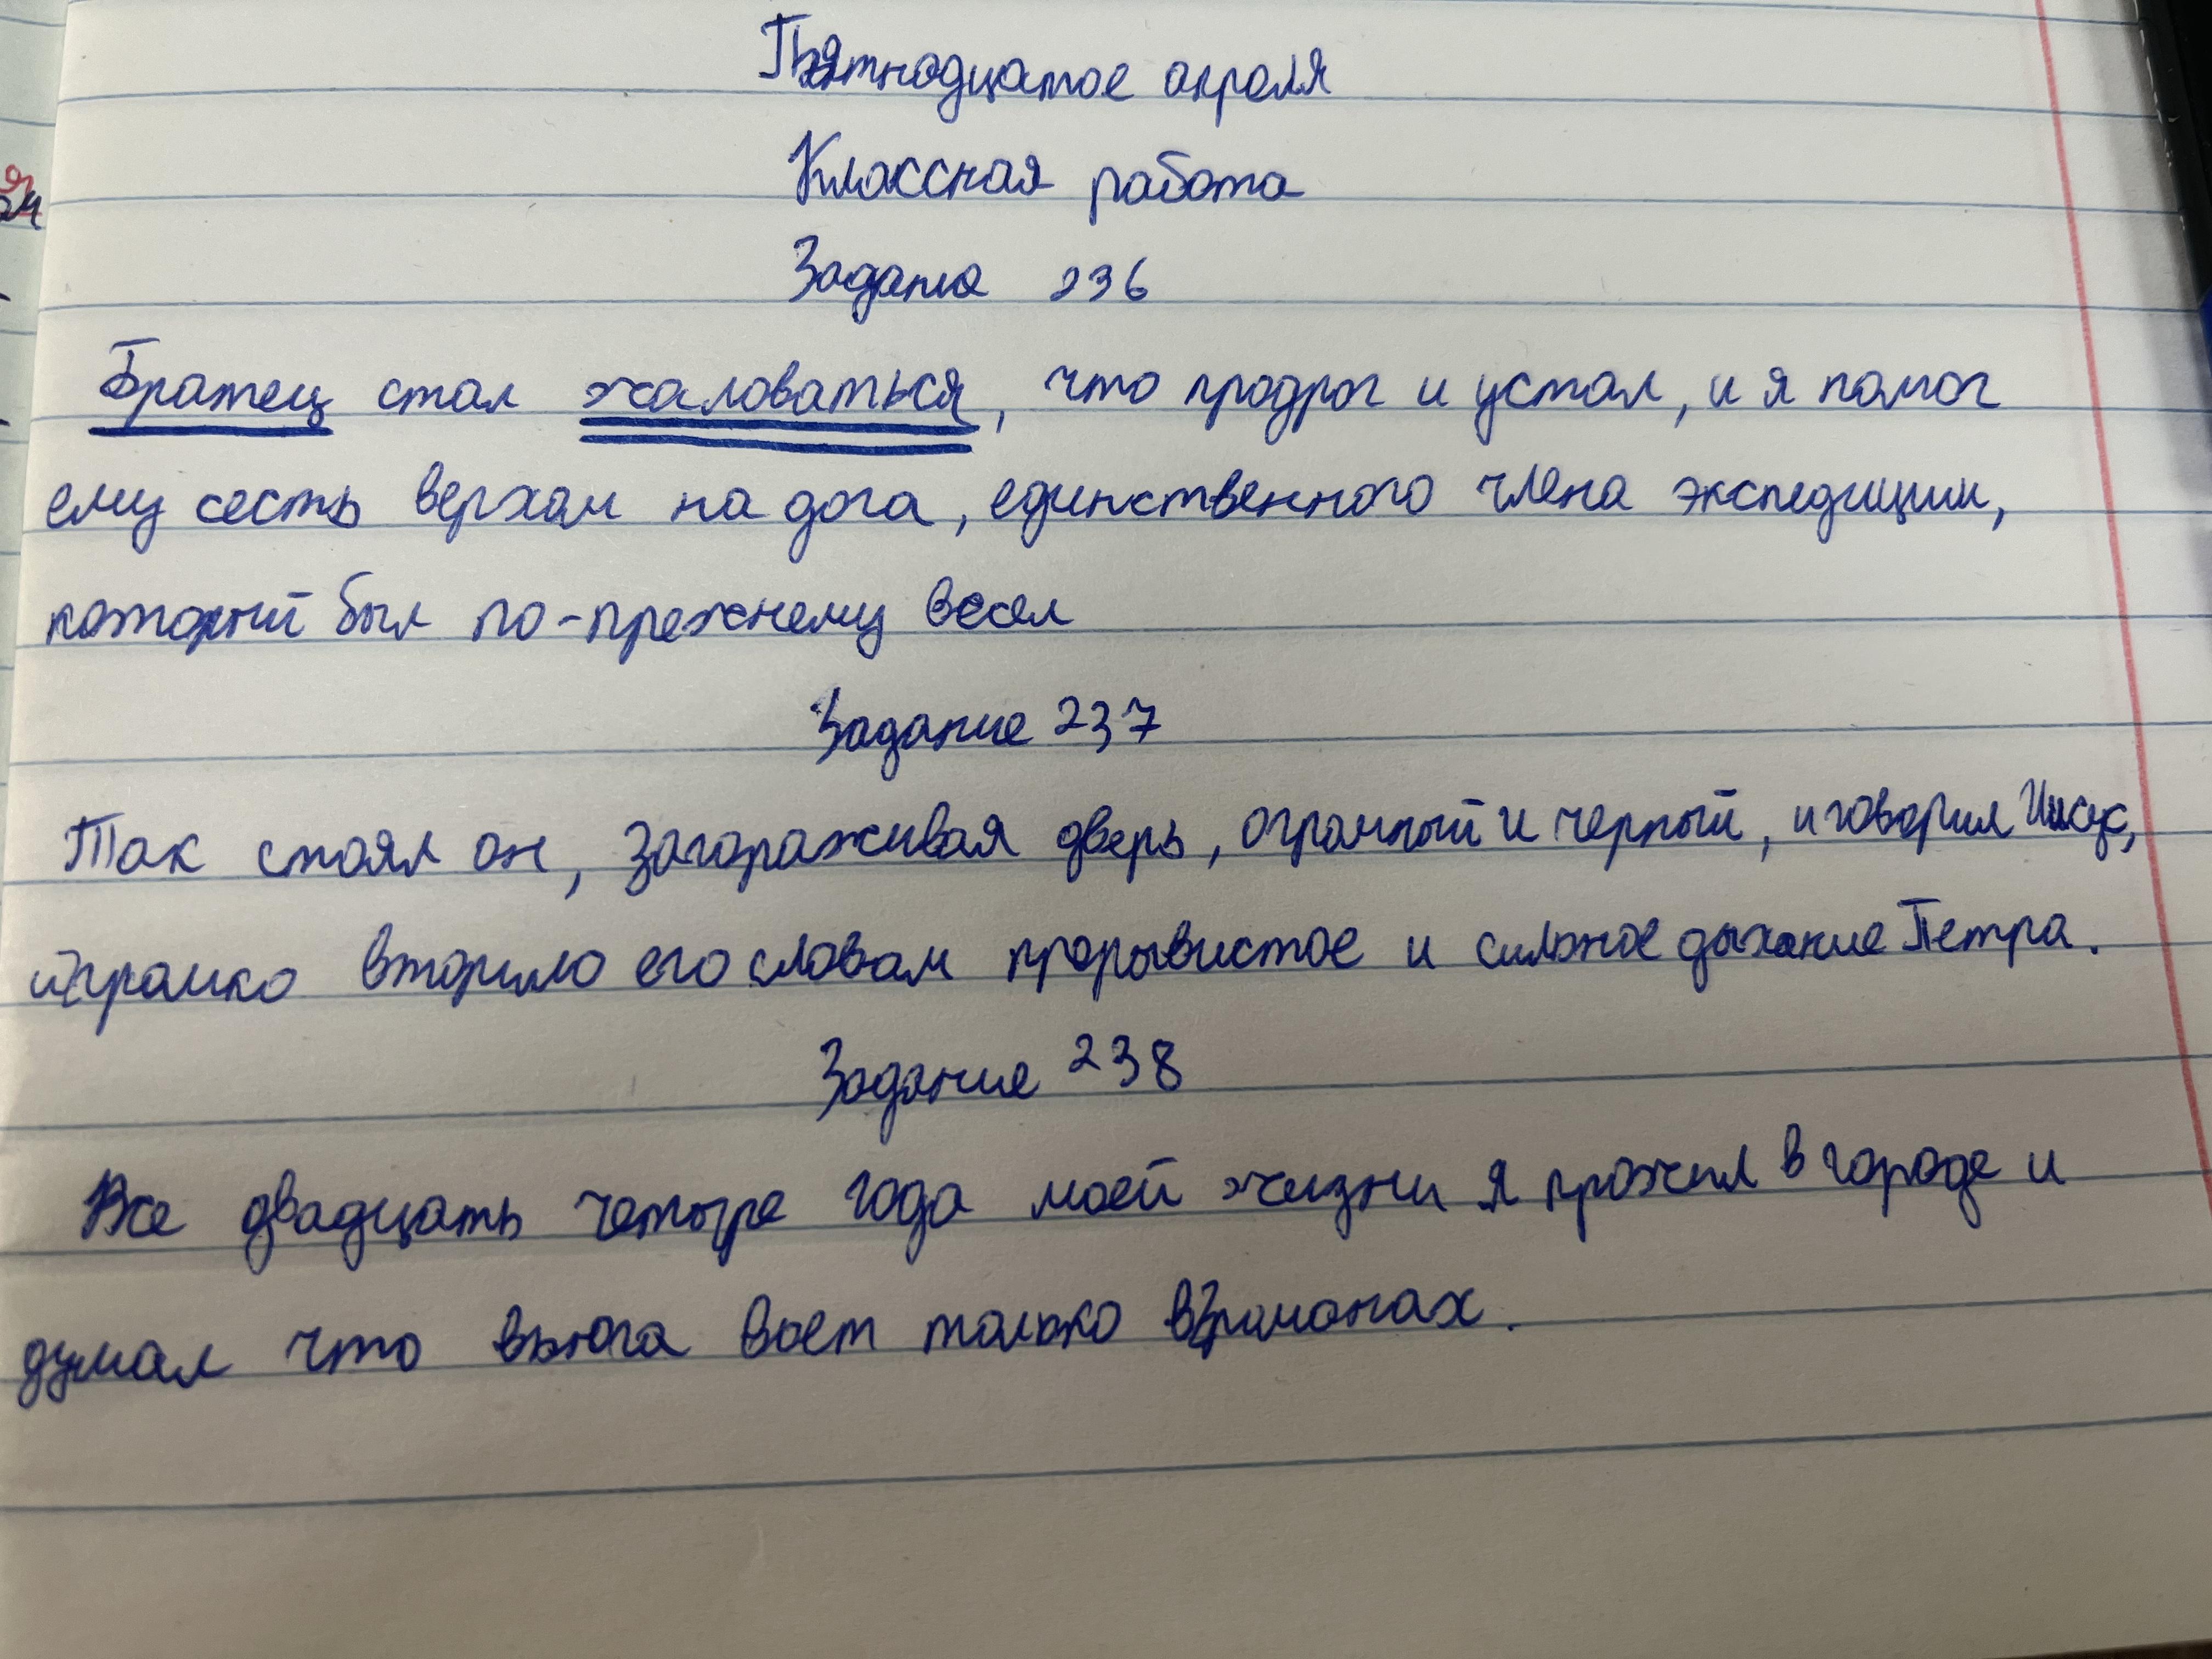 Пятнадцатое апреля
Классная работа
Задание 236
Братец стал жаловаться, что продрог и устал, и я помог
ему сесть верхом на дога, единственного члена экспедиции,
который был по-прежнему весел
Задание 237
Так стоял он, загораживая дверь, огромный и черный, и говорил Иисус,
и громко вторило его словам прорывистое и сильное дыхание Петра.
Задание 238
Все двадцать четыре года моей жизни я прожил в городе и
думал что вьюга воет только в романах.